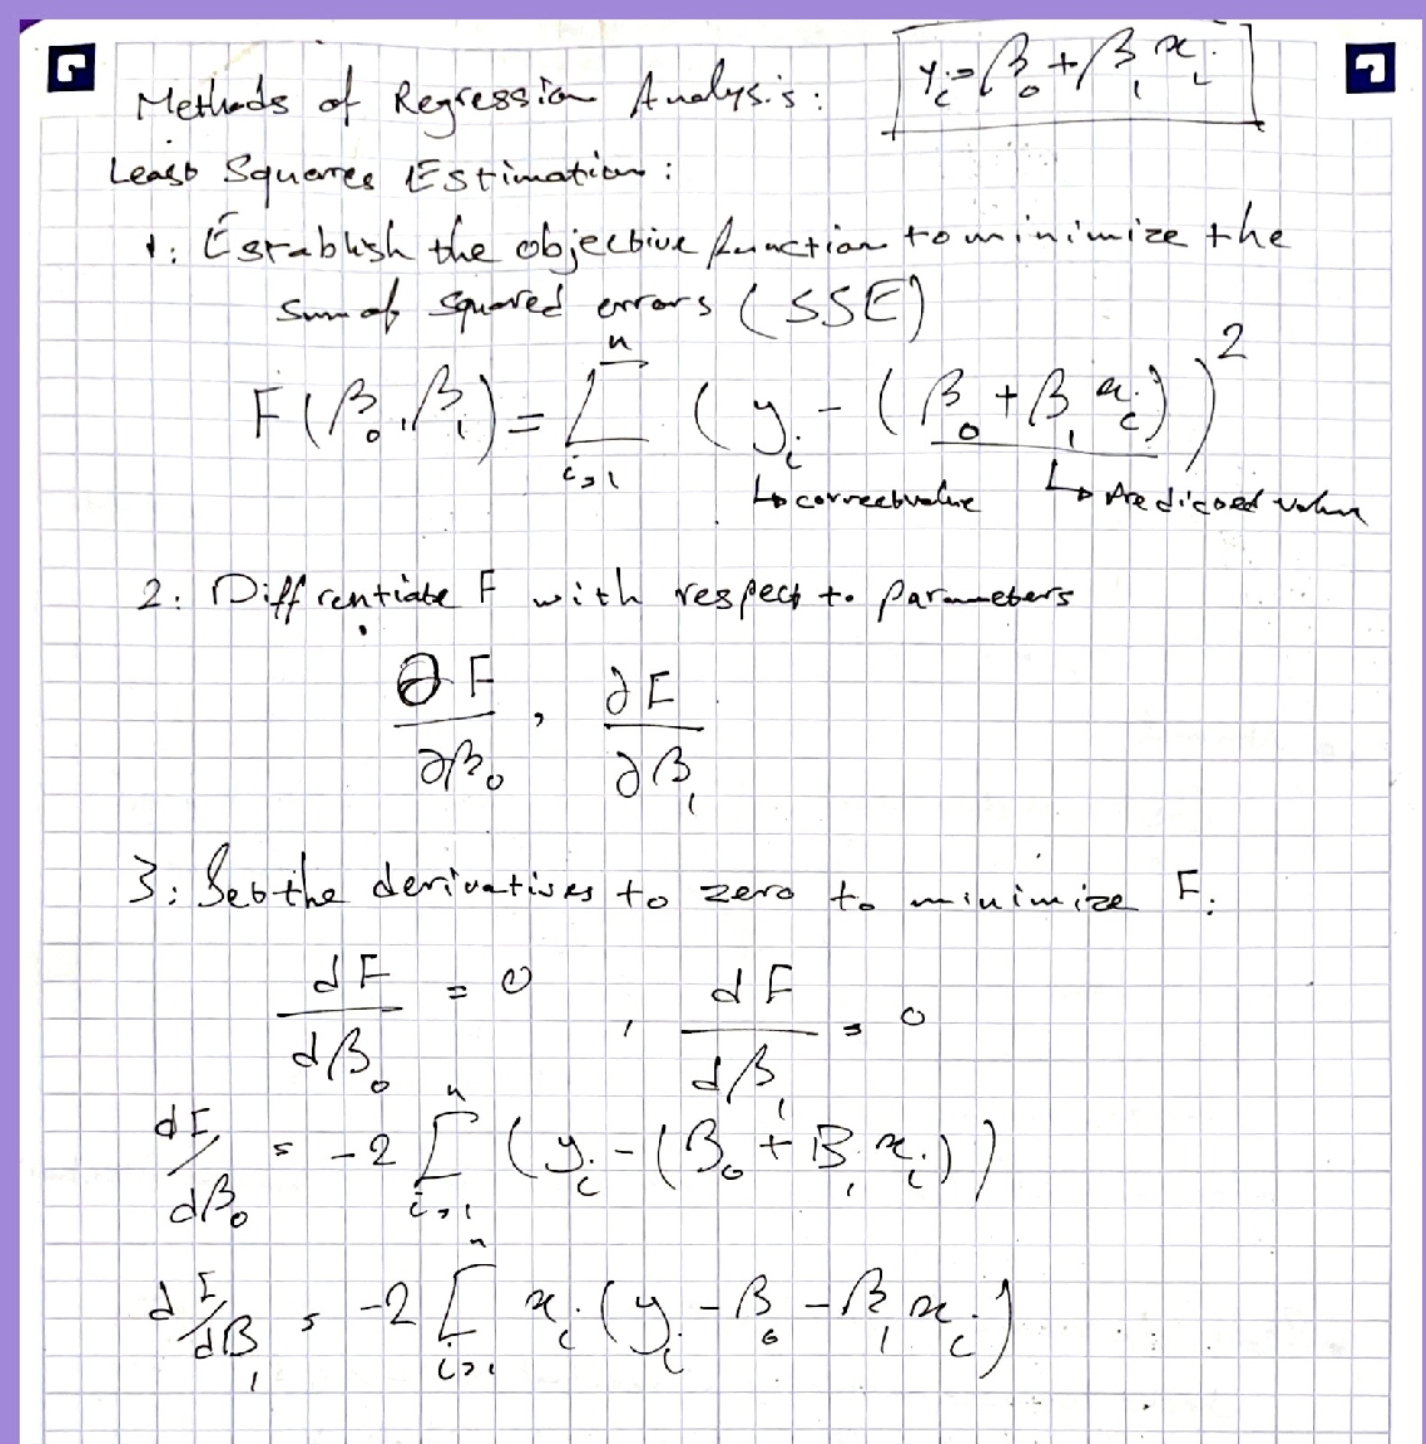 Methods of Regression Analysis: y_i = β_0 + β_1 x_i
Least Squares Estimation:
1: Establish the objective function to minimize the
sum of squared errors (SSE)
F(β_0, β_1) = Σ_{i=1}^{n} (y_i - (β_0 + β_1 x_i))^2
↳ correct value ↳ Predicted value
2: Diffrentiate F with respect to parameters
∂F/∂β_0 , ∂F/∂β_1
3: Set the derivatives to zero to minimize F:
dF/dβ_0 = 0 , dF/dβ_1 = 0
dF/dβ_0 = -2 Σ_{i=1}^{n} (y_i - (β_0 + β_1 x_i))
dF/dβ_1 = -2 Σ_{i=1}^{n} x_i (y_i - β_0 - β_1 x_i)